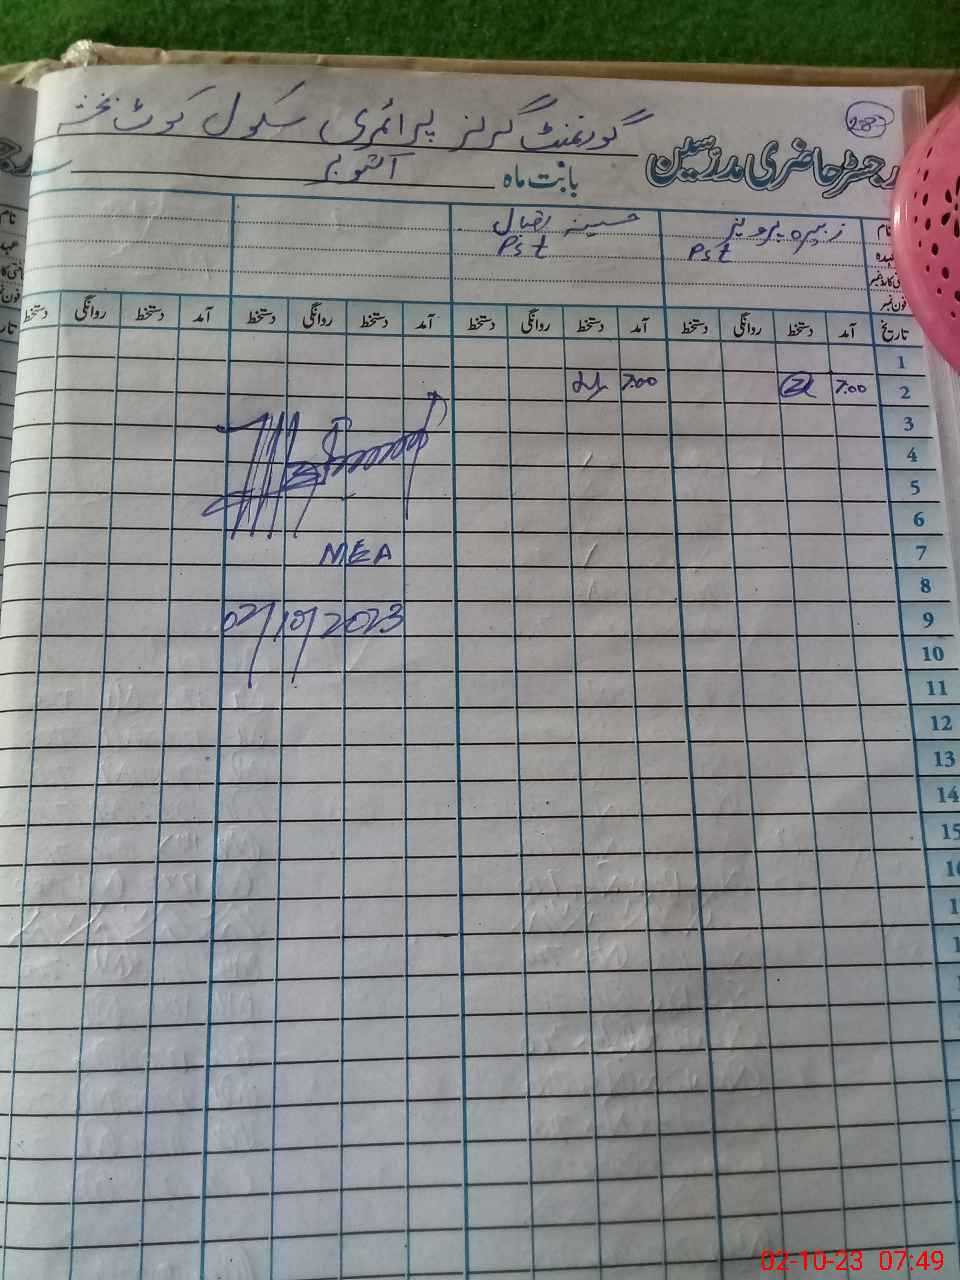 28
گورنمنٹ گرلز پرائمری سکول کوٹ بخشہ
رجسٹر حاضری مدرسین
بابت ماہ اکتوبر
نام زہرہ پرویز حسینہ
عہدہ Pst Pst
فون نمبر
تاریخ آمد دستخط روانگی دستخط آمد دستخط روانگی دستخط آمد دستخط روانگی دستخط آمد دستخط روانگی دستخط
1
2 7:00 7:00
3
4
5
6
7
MEA
8
9
02/10/2023
10
11
12
13
14
15
02-10-23 07:49